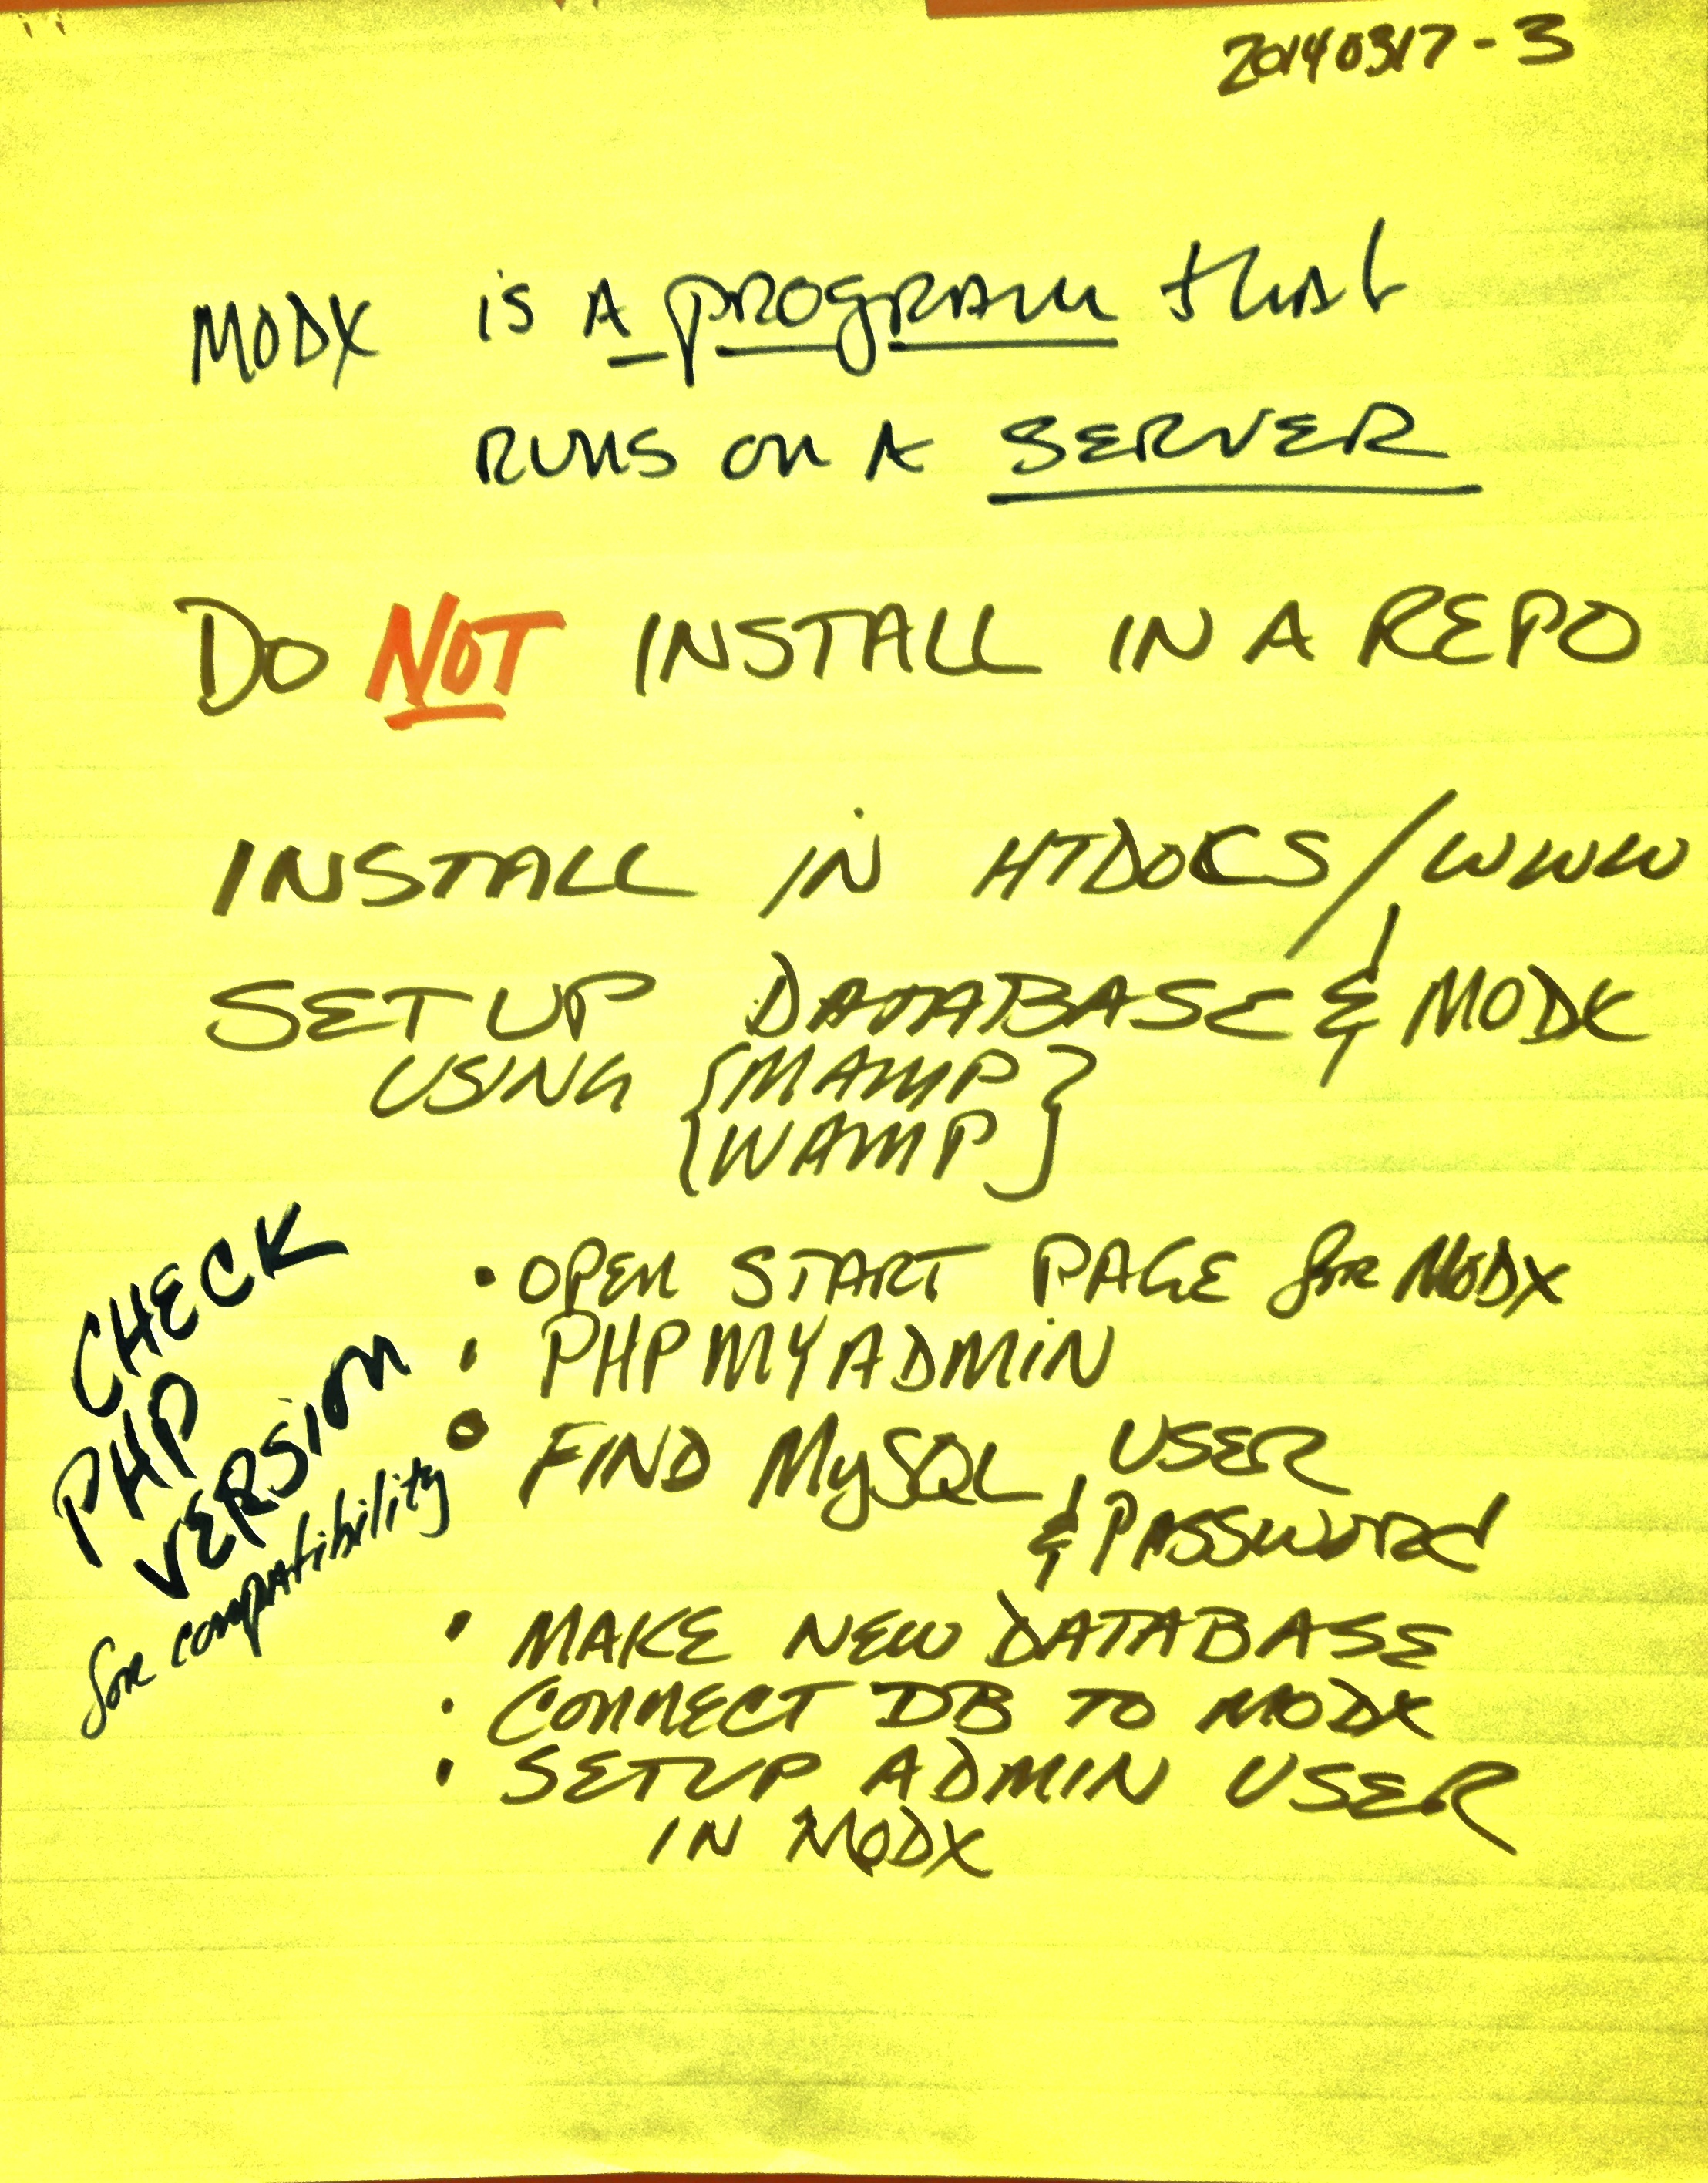 20140317-3
MODX is A program that
RUNS on A SERVER
DO NOT INSTALL IN A REPO
INSTALL IN HTDOCS/WWW
SETUP DATABASE & MODX
USING {MAMP}
{WAMP}
CHECK
PHP
VERSION
for compatibility
• OPEN START PAGE for MODX
• PHPMYADMIN
• FIND MySQL USER
& PASSWORD
• MAKE NEW DATABASE
• CONNECT DB TO MODX
• SETUP ADMIN USER
IN MODX